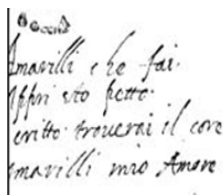 Amarilli che fai.
Appri sto petto.
critto trouerai il core
Amarilli mio Amore